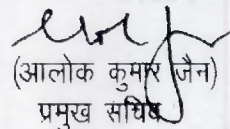 (आलोक कुमार जैन)
प्रमुख सचिव